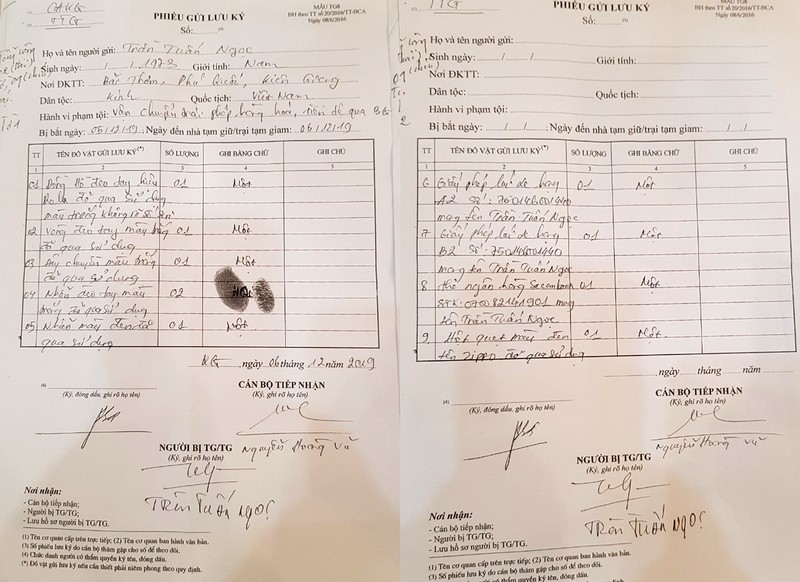 CAKG
TTG
PHIẾU GỬI LƯU KÝ
Số:
MẪU TG8
BH theo TT số 20/2016/TT-BCA
Ngày 08/6/2016
Họ và tên người gửi: Trần Tuấn Ngọc
Sinh ngày: / / 1973 Giới tính: Nam
Nơi ĐKTT: Phú Quốc, Kiên Giang
Dân tộc: Kinh Quốc tịch: Việt Nam
Hành vi phạm tội: Vận chuyển trái phép hàng hóa, tiền tệ qua BG
Bị bắt ngày: 05/12/19 Ngày đến nhà tạm giữ/trại tạm giam: 06/12/19
TT TÊN ĐỒ VẬT GỬI LƯU KÝ(*) SỐ LƯỢNG GHI BẰNG CHỮ GHI CHÚ
1 2 3 4 5
01 Đồng hồ đeo tay hiệu 01 Một
đã qua sử dụng
màu trắng không rõ số
02 Vòng đeo tay màu 01 Một
đã qua sử dụng
03 dây chuyền màu trắng 01 Một
đã qua sử dụng
04 Nhẫn đeo tay màu 02 Hai
trắng đã qua sử dụng
05 Nhẫn màu đen đã 01 Một
qua sử dụng
KG, ngày 06 tháng 12 năm 2019
(4)
(Ký, đóng dấu, ghi rõ họ tên)
CÁN BỘ TIẾP NHẬN
(Ký, ghi rõ họ tên)
Nguyễn Hoàng Vũ
NGƯỜI BỊ TG/TG
(Ký, ghi rõ họ tên)
TRẦN TUẤN NGỌC
Nơi nhận:
- Cán bộ tiếp nhận;
- Người bị TG/TG;
- Lưu hồ sơ người bị TG/TG.
(1) Tên cơ quan cấp trên trực tiếp; (2) Tên cơ quan ban hành văn bản.
(3) Số phiếu lưu ký do cán bộ thăm gặp cho số để theo dõi.
(4) Chức danh người có thẩm quyền ký tên, đóng dấu.
(*) Đồ vật gửi lưu ký nếu cần thiết phải niêm phong theo quy định.
TTG
PHIẾU GỬI LƯU KÝ
Số:
MẪU TG8
BH theo TT số 20/2016/TT-BCA
Ngày 08/6/2016
Họ và tên người gửi:
Sinh ngày: / / Giới tính:
Nơi ĐKTT:
Dân tộc: Quốc tịch:
Hành vi phạm tội:
Bị bắt ngày: / / Ngày đến nhà tạm giữ/trại tạm giam: / /
TT TÊN ĐỒ VẬT GỬI LƯU KÝ(*) SỐ LƯỢNG GHI BẰNG CHỮ GHI CHÚ
1 2 3 4 5
6 Giấy phép lái xe hạng 01 Một
A2 số: 750146001440
mang tên Trần Tuấn Ngọc
7 Giấy phép lái xe hạng 01 Một
B2 số: 750146001440
mang tên Trần Tuấn Ngọc
8 thẻ ngân hàng Sacombank 01 Một
STK: 070082141901 mang
tên Trần Tuấn Ngọc
9 Hột quẹt màu đen 01 Một
tên Zippo đã qua sử dụng
ngày tháng năm
(4)
(Ký, đóng dấu, ghi rõ họ tên)
CÁN BỘ TIẾP NHẬN
(Ký, ghi rõ họ tên)
Nguyễn Hoàng Vũ
NGƯỜI BỊ TG/TG
(Ký, ghi rõ họ tên)
TRẦN TUẤN NGỌC
Nơi nhận:
- Cán bộ tiếp nhận;
- Người bị TG/TG;
- Lưu hồ sơ người bị TG/TG.
(1) Tên cơ quan cấp trên trực tiếp; (2) Tên cơ quan ban hành văn bản.
(3) Số phiếu lưu ký do cán bộ thăm gặp cho số để theo dõi.